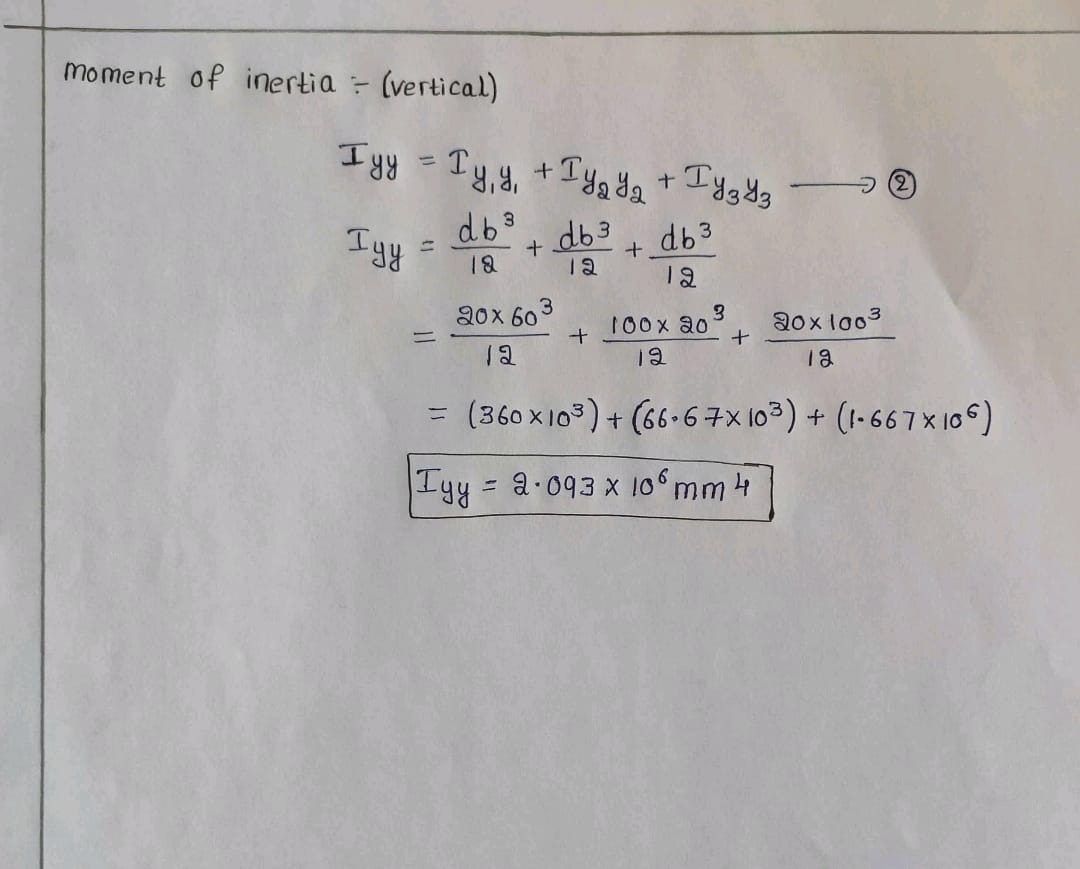 moment of inertia :- (vertical)
Iyy = Iy₁y₁ + Iy₂y₂ + Iy₃y₃ ⟶ ②
Iyy = db³/12 + db³/12 + db³/12
= 20x60³/12 + 100x20³/12 + 20x100³/12
= (360x10³) + (66.67x10³) + (1.667x10⁶)
Iyy = 2.093 x 10⁶ mm4